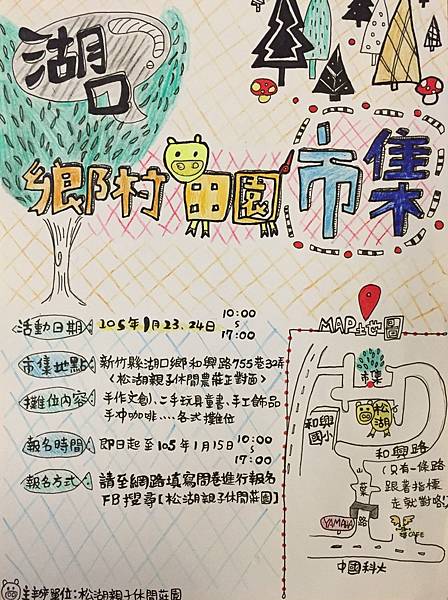 湖口
鄉村田園市集
活動日期 105年1月23.24日 10:00
s
17:00
市集地點 新竹縣湖口鄉和興路755巷32弄
<松湖親子休閒農莊正對面>
攤位內容 手作文創、二手玩具童書、手工飾品
手沖咖啡....各式攤位
報名時間 即日起至105年1月15日 10:00
s
17:00
報名方式 請至網路填寫問卷進行報名
FB搜尋【松湖親子休閒莊園】
主辦單位:松湖親子休閒莊園
MAP地圖
市集
松湖
和興
國小
和興路
(只有一條路
跟著指標
走就對咯)
YAMAHA
CAFE
中國科大